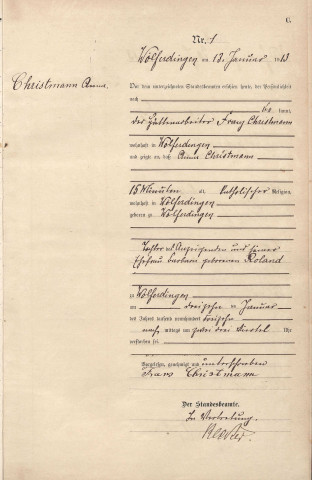 C.
Nr. 1
Wölferdingen am 13. Januar 1913
Christmann Anna.
Vor dem unterzeichneten Standesbeamten erschien heute, der Persönlichkeit
nach
kannt,
der Hüttenarbeiter Franz Christmann
wohnhaft in Wölferdingen
und zeigte an, daß Anna Christmann
15 Minuten alt, katholischer Religion,
wohnhaft in Wölferdingen
geboren zu Wölferdingen
Tochter des Anzeigenden und seiner
Ehefrau Barbara geborenen Roland
zu Wölferdingen
am dreizehn ten Januar
des Jahres tausend neunhundert dreizehn
nach mittags um zwei drei Viertel Uhr
verstorben sei.
Vorgelesen, genehmigt und unterschrieben
Franz Christmann
Der Standesbeamte.
In Vertretung.